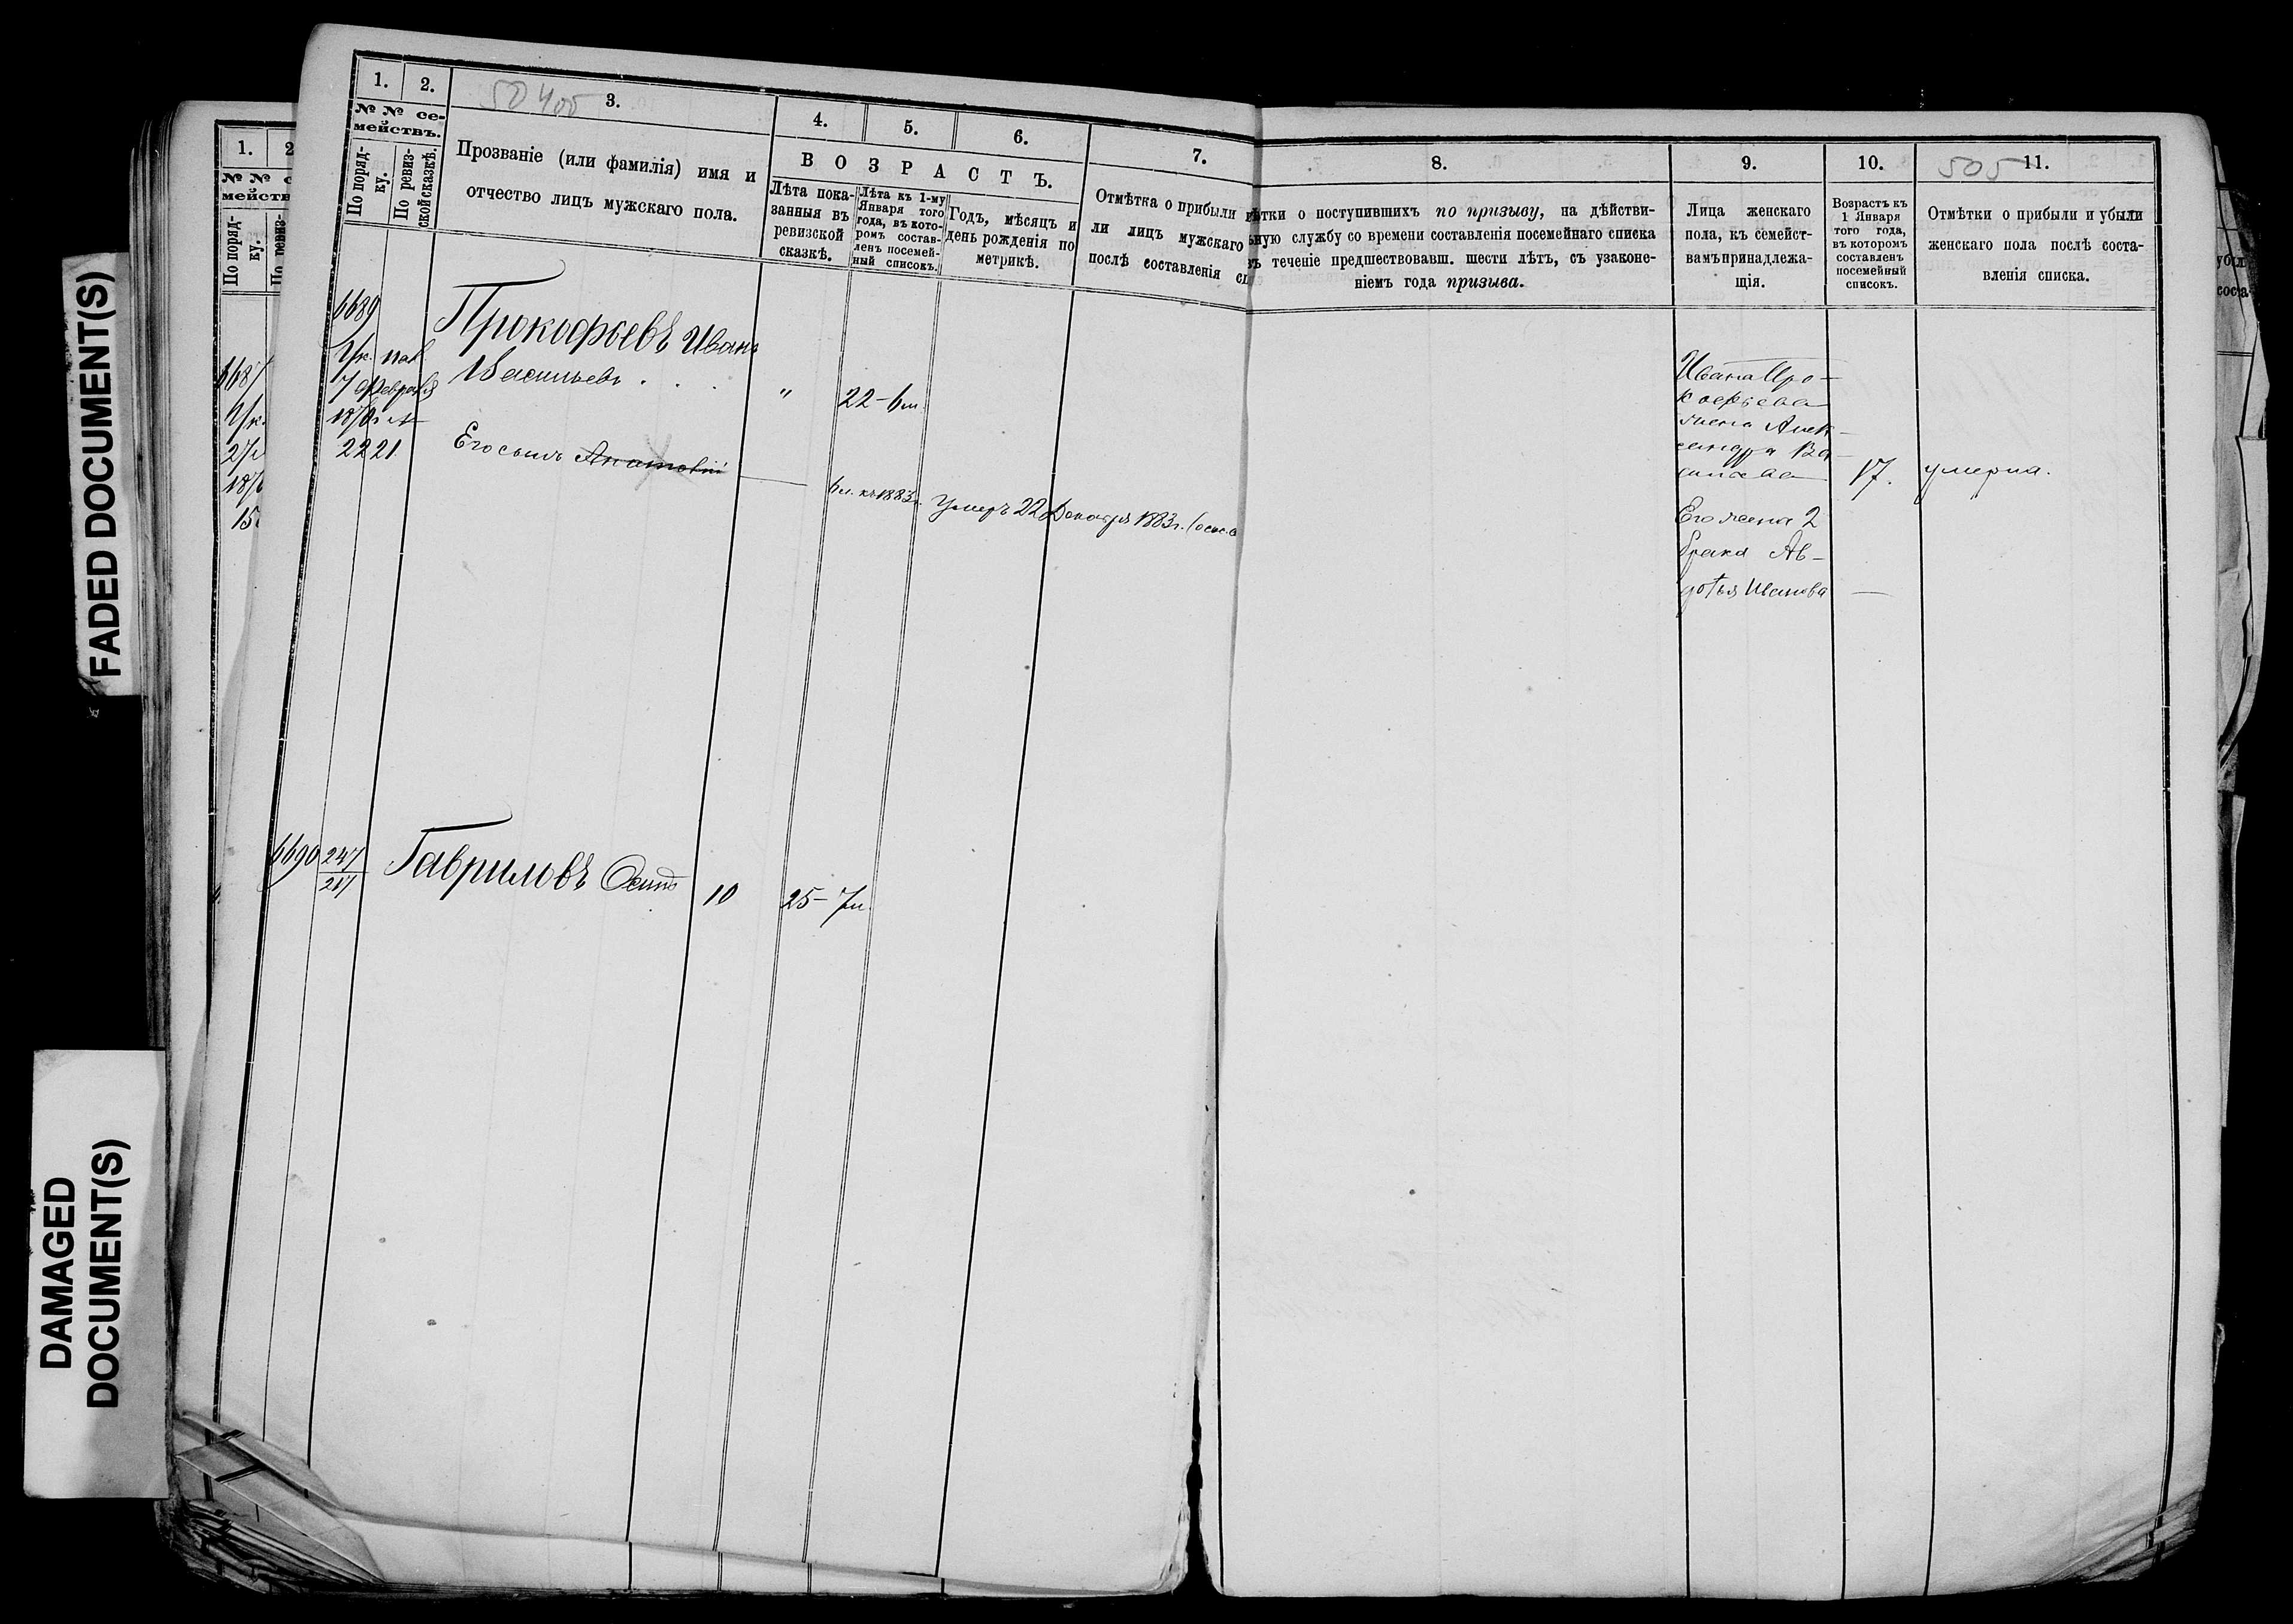 FADED DOCUMENT(S)
DAMAGED
DOCUMENT(S)
1.
№ №
мейств
По поряд-
ку.
6687
1. 2. 3. 4. 5. 6. 7.
№ № се-
мействъ.
По поряд-
ку.
По ревиз-
ской сказкѣ.
Прозваніе (или фамилія) имя и
отчество лицъ мужскаго пола.
ВОЗРАСТЪ.
Лѣта пока-
занныя въ
ревизской
сказкѣ.
Лѣта къ 1-му
Января того
года, въ кото-
ромъ состав-
ленъ посемей-
ный списокъ.
Годъ, мѣсяцъ и
день рожденія по
метрикѣ.
Отмѣтка о прибыли
ли лицъ мужскаго
послѣ составленія
6689
Прокофьевъ Иванъ
Васильевъ . . .
" 22-6м.
7 февраля
2221
Его сынъ Анатолій
6м. къ 1883г.
Умеръ 22 Декабря 1883г.
6690 247
217
Гавриловъ Осипъ
10
25-7м.
8. 9. 10. 11.
505
ѣтки о поступившихъ по призыву, на дѣйстви-
ьную службу со времени составленія посемейнаго списка
въ теченіе предшествовавш. шести лѣтъ, съ узаконе-
ніемъ года призыва.
Лица женскаго
пола, къ семейст-
вамъ принадлежа-
щія.
Возрастъ къ
1 Января
того года,
въ которомъ
составленъ
посемейный
списокъ.
Отмѣтки о прибыли и убыли
женскаго пола послѣ соста-
вленія списка.
Ивана Про-
кофьева
жена Алек-
сандра Ва-
17. умерла.
Его жена 2
брака Ав-
дотья Иванова —